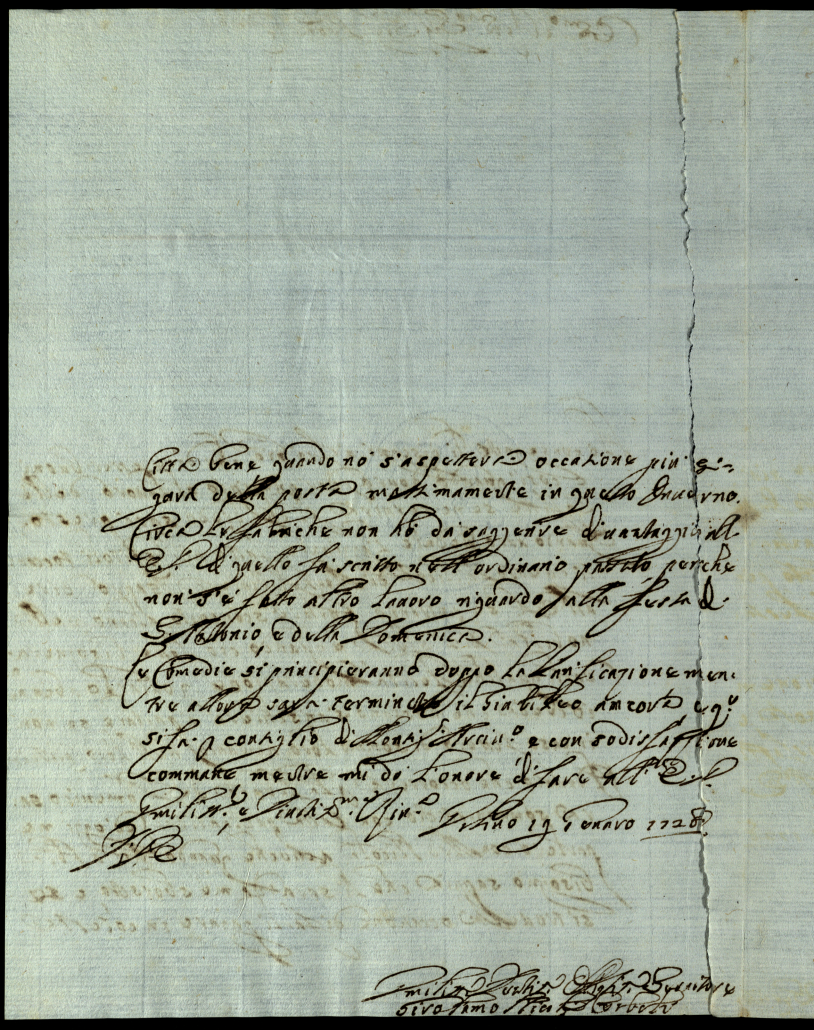 Città bene quando nõ s'aspetterà occasione più si-
gura della posta massimamente in questo Inverno.
Circa le fabriche non hò da suggerire di vantaggio all
di quello hà scritto nell'ordinario passato perche
non s'è fatto altro lavoro riguardo alla festa di
S. Antonio e della Domenica.
Le Comedie si principieranno doppo la Panificazione men-
tre allora sarà terminato il Giubileo ancora e q.o
si fà p consiglio di Monsig.r Arciv.o e con sodisfattione
commune mentre mi dò l'onore di fare all'
Umiliss.o e Rin.o Urbino 19 Genaro 1728

Umiliss. Servitore
Girolamo